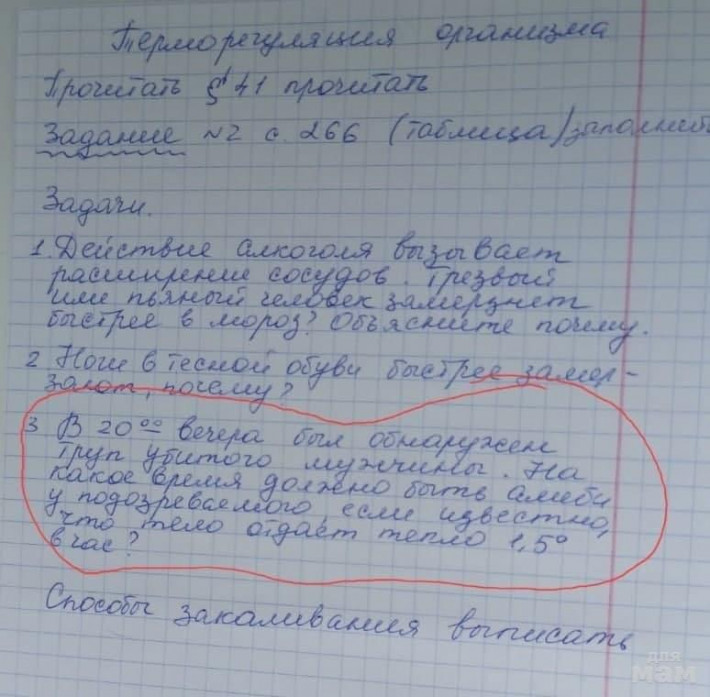 Терморегуляция организма
Прочитать § 41 прочитать
Задание №2 с. 266 (таблица) заполнить
Задачи.
1. Действие алкоголя вызывает
расширение сосудов. Трезвый
или пьяный человек замерзнет
быстрее в мороз? Объясните почему.
2 Ноги в тесной обуви быстрее замер-
зают, почему?
3 В 20°° вечера был обнаружен
труп убитого мужчины. На
какое время должно быть алиби
у подозреваемого, если известно,
что тело отдает тепло 1,5°
в час?
Способы закаливания выписать
для
мам